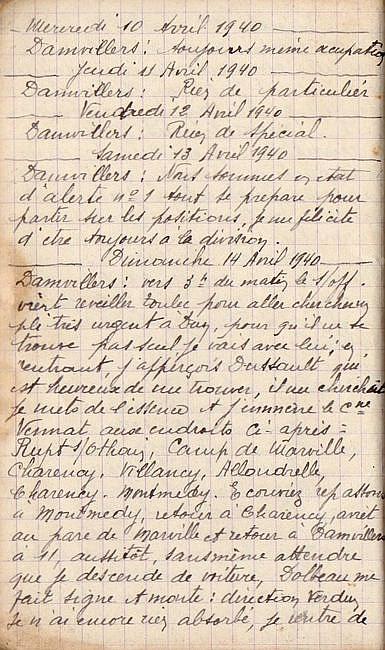 Mercredi 10 Avril 1940
Damvillers : toujours même occupation
Jeudi 11 Avril 1940
Damvillers : Rien de particulier
Vendredi 12 Avril 1940
Damvillers : Rien de spécial.
Samedi 13 Avril 1940
Damvillers : Nous sommes en état
d'alerte n° 1 tout se prépare pour
partir sur les positions, je me félicite
d'être toujours à la division.
Dimanche 14 Avril 1940
Damvillers : vers 3h du matin le s/off.
vient reveiller Toulec pour aller chercher un
pli très urgent à Dun, pour qu'il ne se
trouve pas seul je vais avec lui, en
rentrant, j'apperçois Dussault, qui
est heureux de me trouver, il me cherchait
je mets de l'essence et j'emmène le Cne
Vermat aux endroits Ci-après =
Rupt s/Othain, Camp de Marville,
Charency, Villancy, Allondrelle,
Charency. Montmédy. Ecouviez repassons
à Montmedy, retour à Charency, arret
au parc de Marville et retour à Damvillers
à 11, aussitôt, sans même attendre
que je descende de voiture, Dolbeau me
fait signe et monte : direction Verdun
je n'ai encore rien absorbé, je rentre de